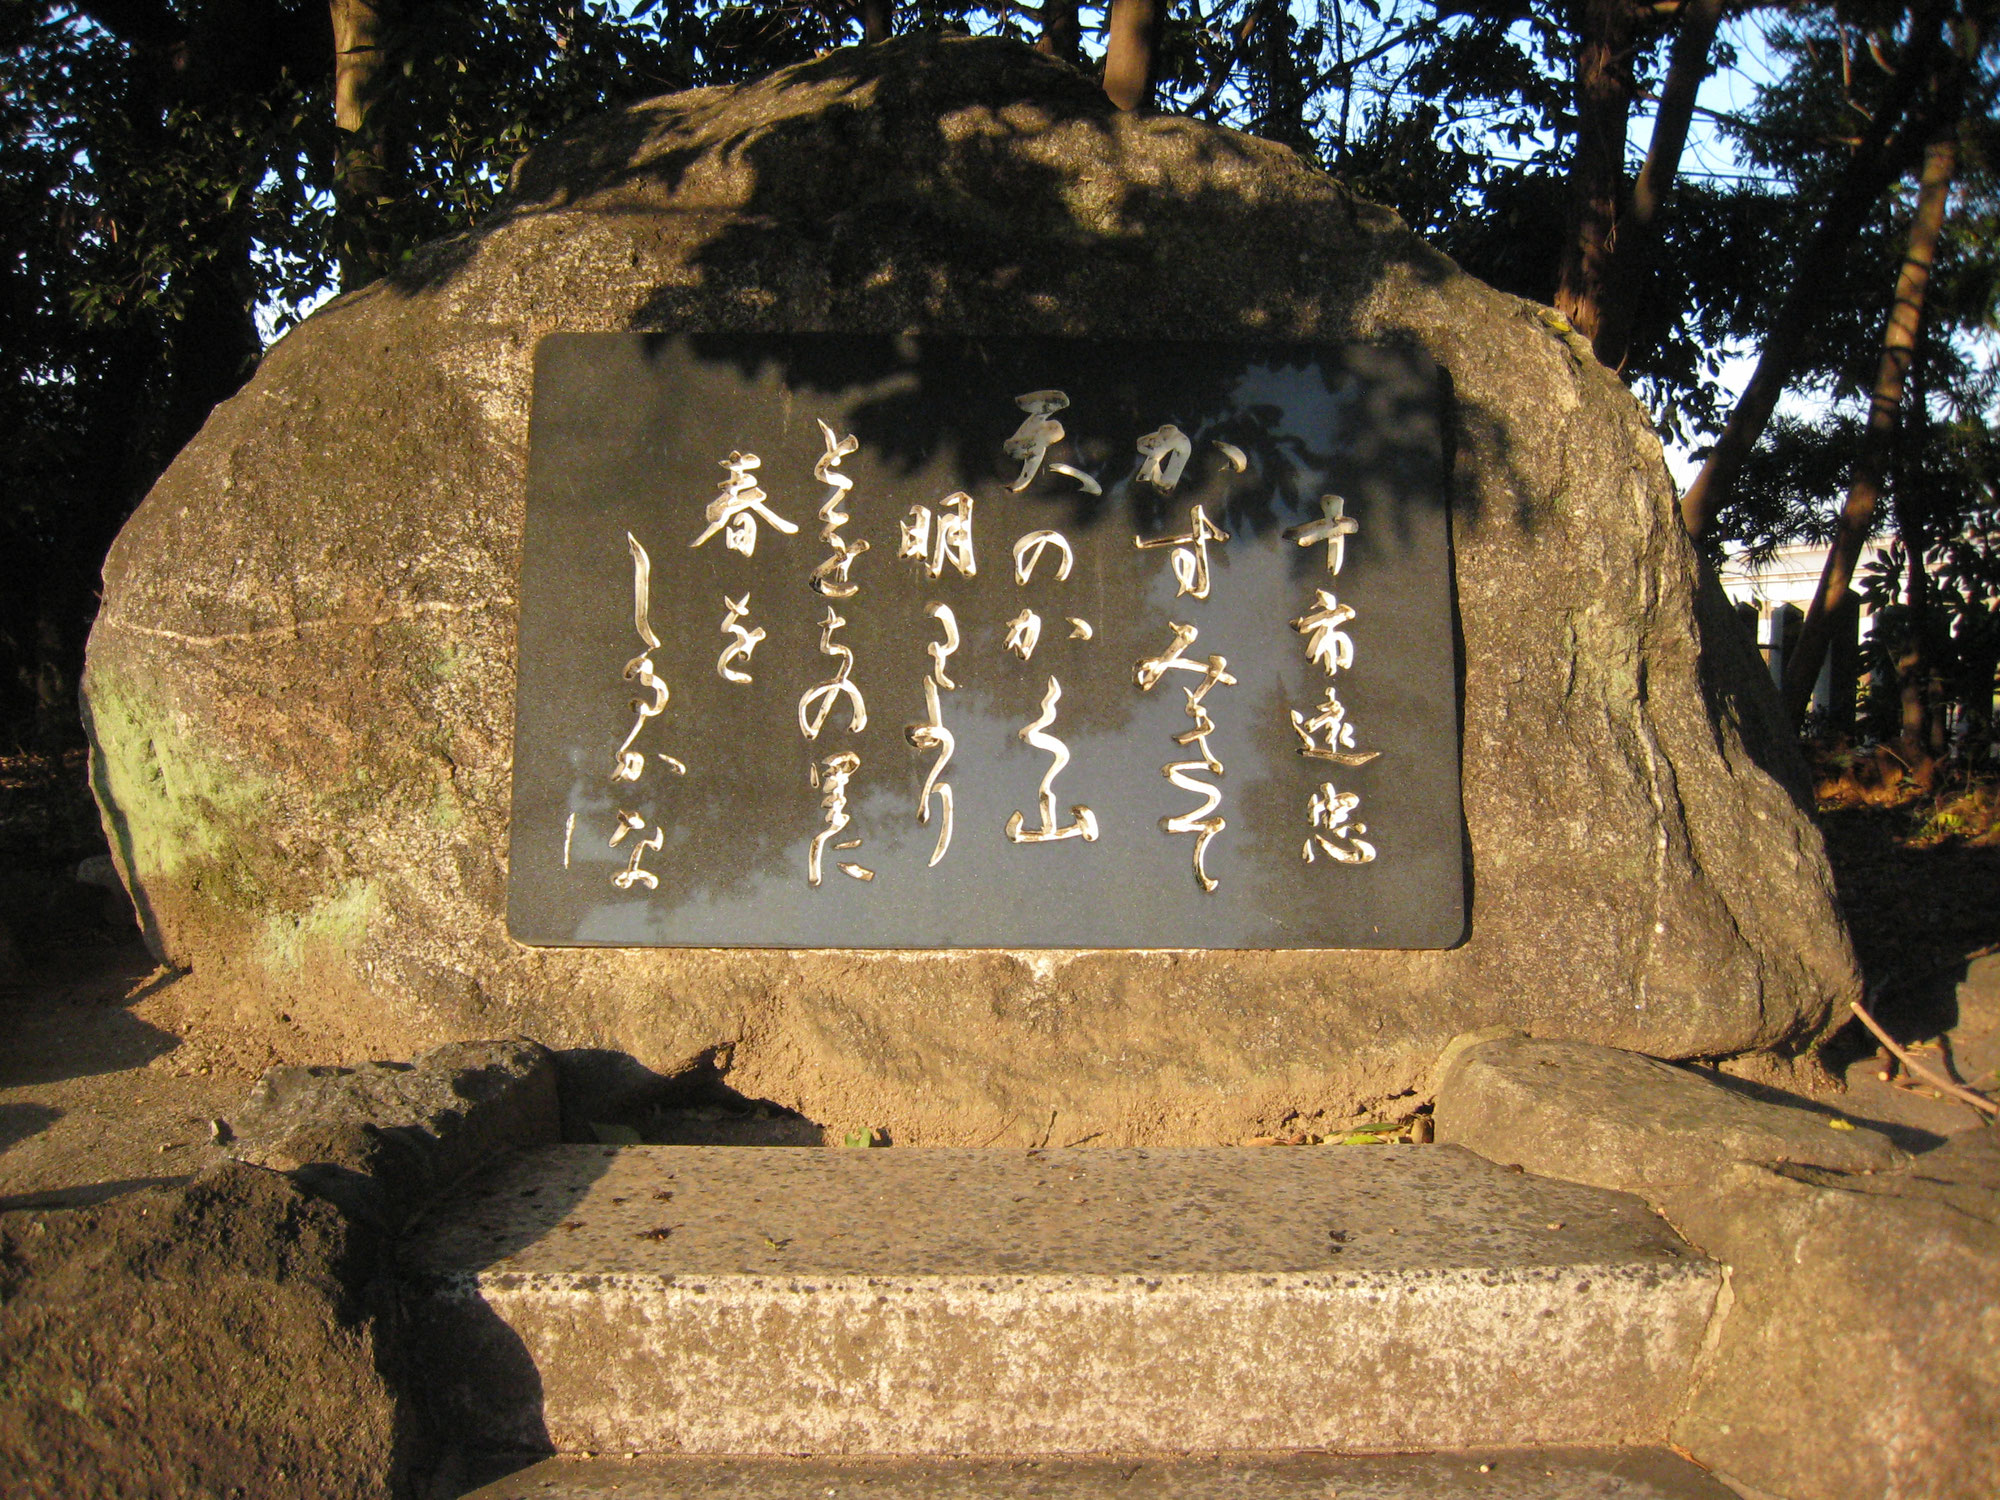 十市遠忠
かすみ
天のかく山
明
をちの里に
春を
しるかな